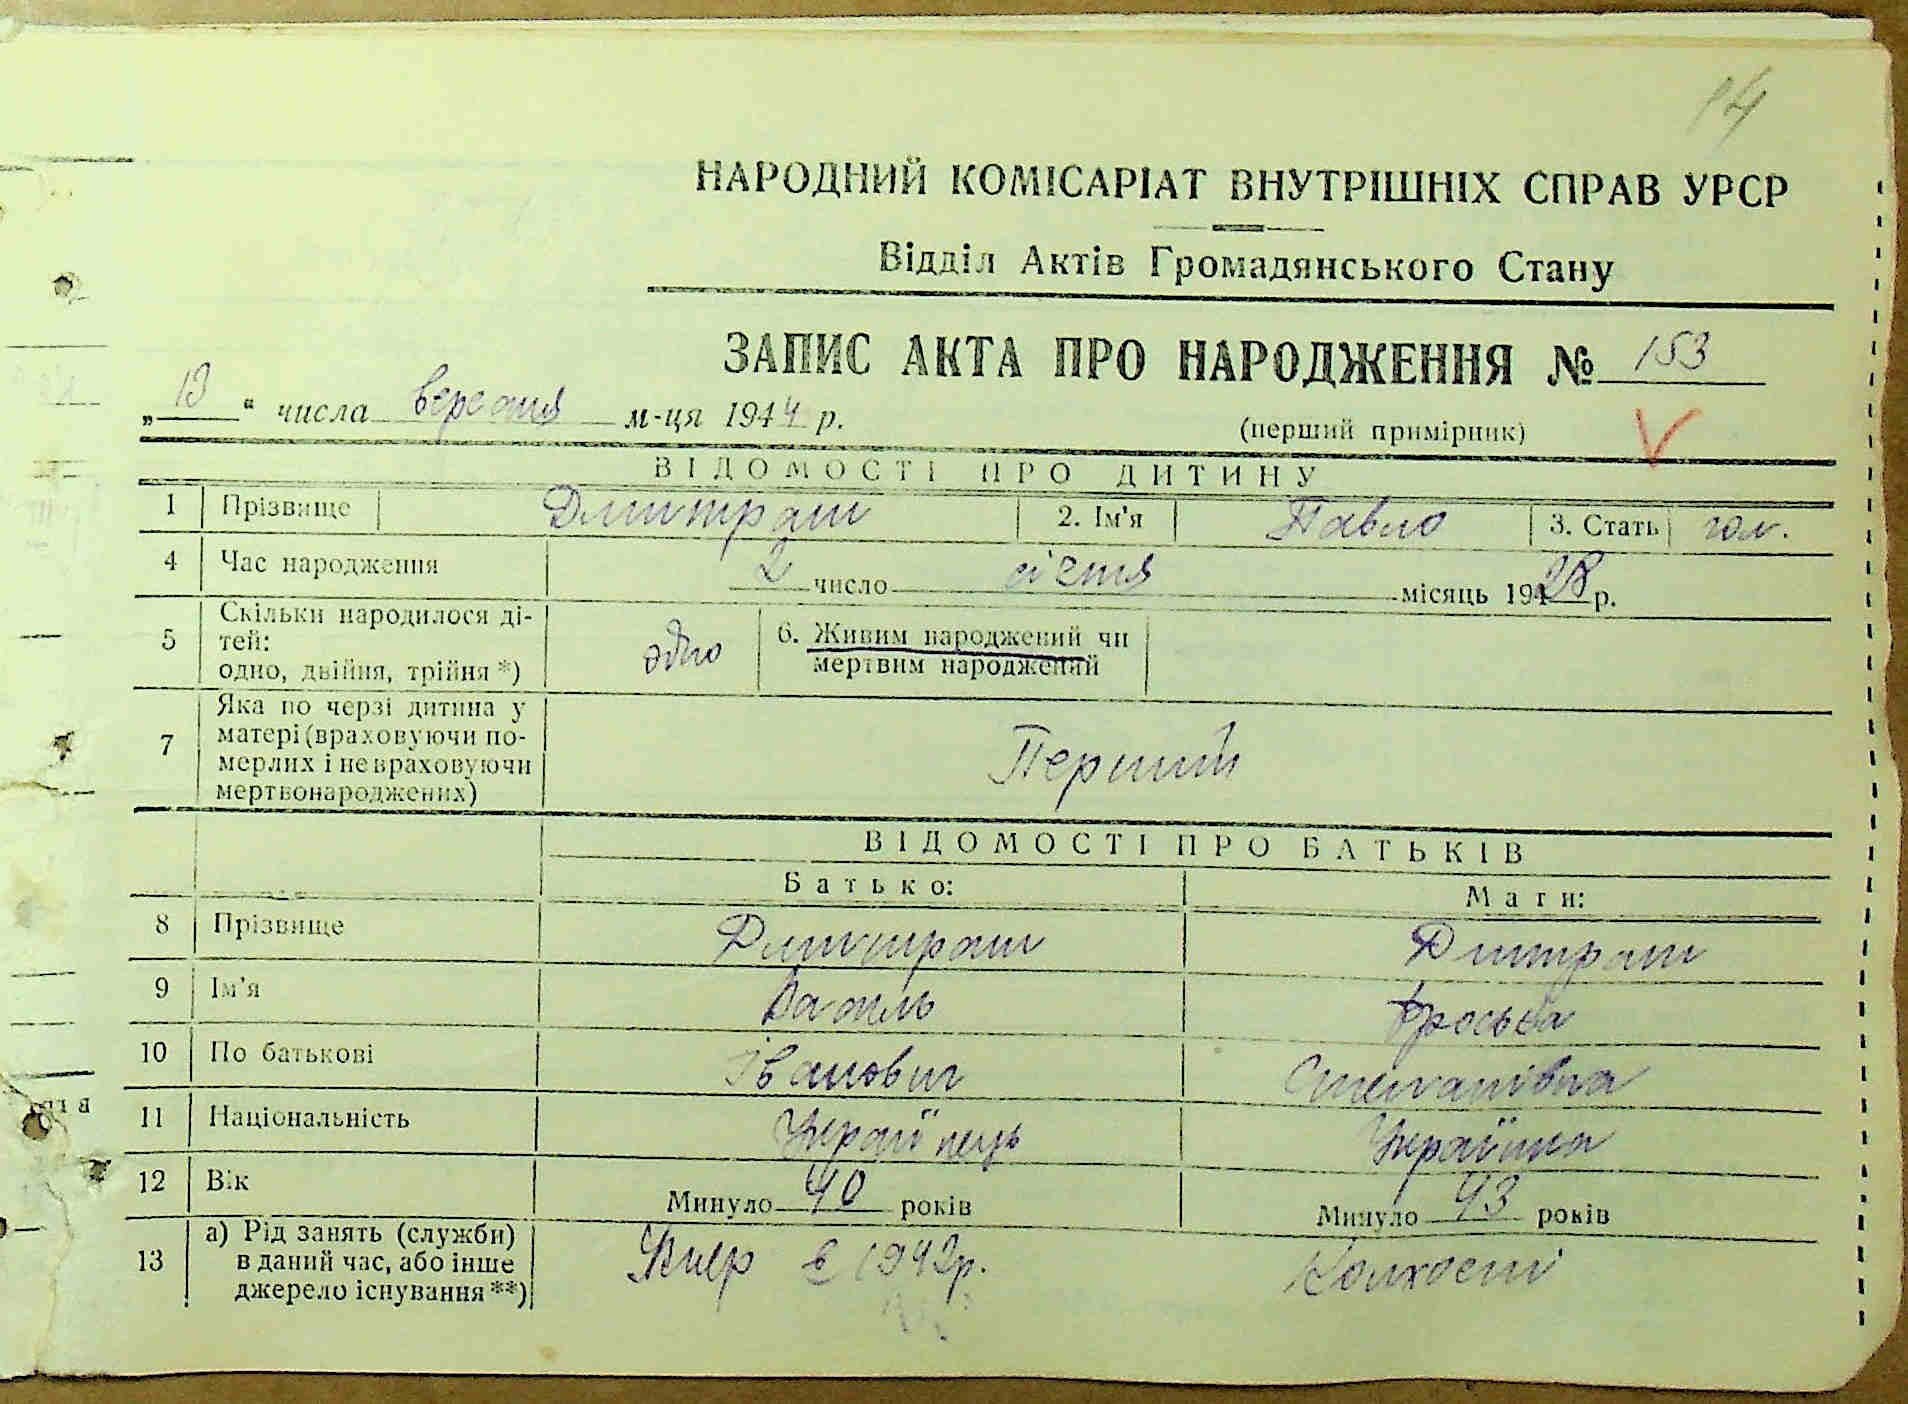 14
НАРОДНИЙ КОМІСАРІАТ ВНУТРІШНІХ СПРАВ УРСР
Відділ Актів Громадянського Стану
ЗАПИС АКТА ПРО НАРОДЖЕННЯ № 153
„13“ числа вересня м-ця 1944 р.
(перший примірник)
ВІДОМОСТІ ПРО ДИТИНУ
1 Прізвище Дмитраш 2. Ім'я Павло 3. Стать чол.
4 Час народження 2 число січня місяць 1928 р.
5 Скільки народилося ді-
тей:
одно, двійня, трійня *) одно 6. Живим народжений чи
мертвим народжений
7 Яка по черзі дитина у
матері (враховуючи по-
мерлих і не враховуючи
мертвонароджених) Перший
ВІДОМОСТІ ПРО БАТЬКІВ
Батько: Мати:
8 Прізвище Дмитраш Дмитраш
9 Ім'я Василь Фроська
10 По батькові Іванович Степанівна
11 Національність Українець Українка
12 Вік Минуло 40 років Минуло 43 років
13 а) Рід занять (служби)
в даний час, або інше
джерело існування **) Вмер в 1942р.